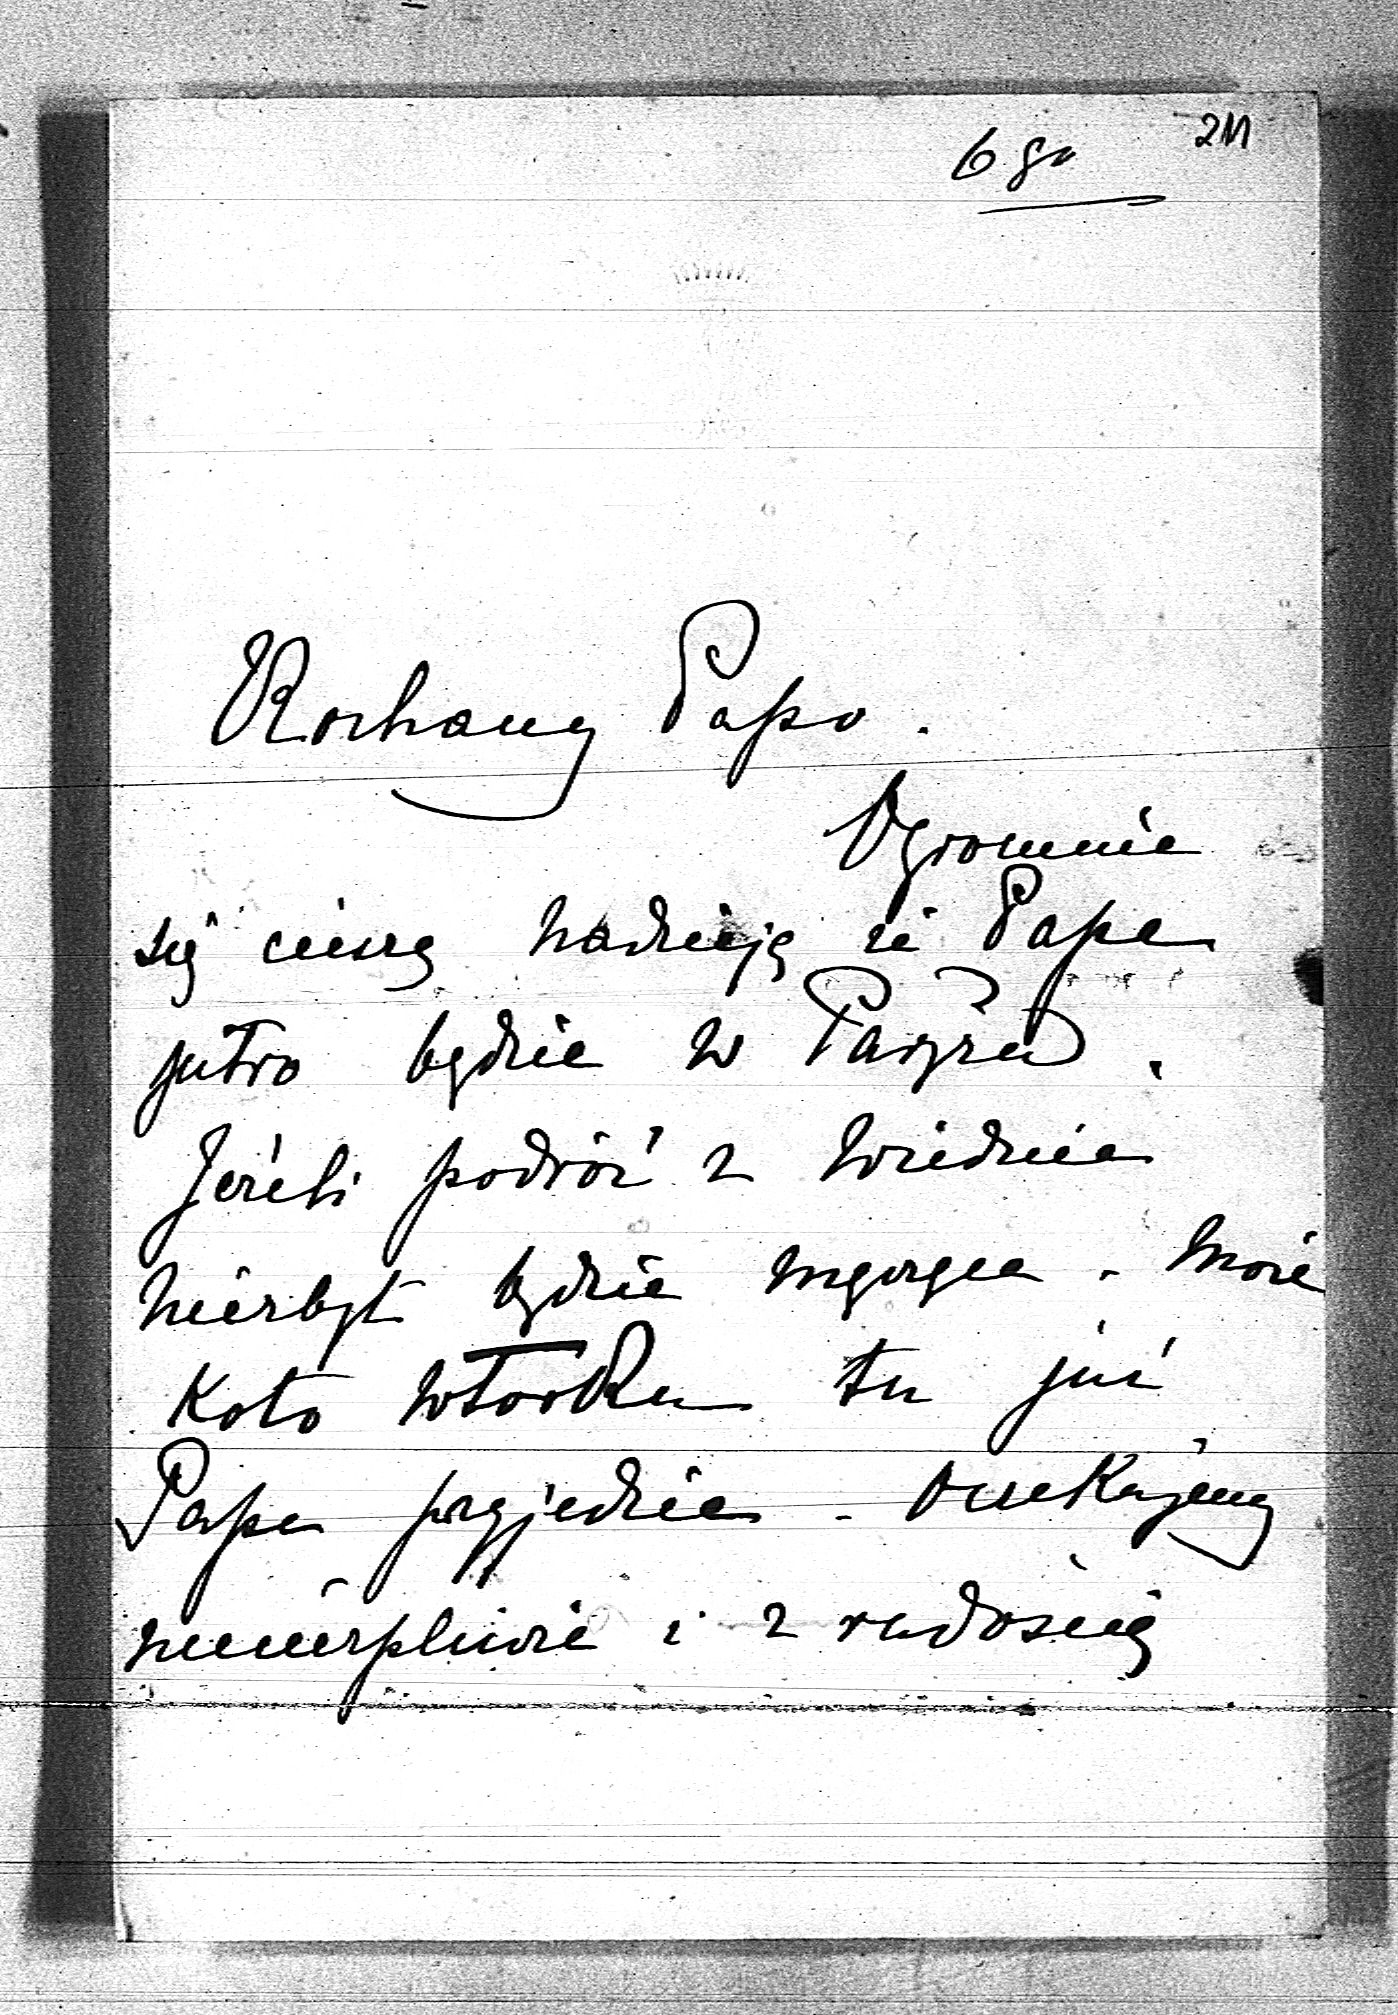 211
6go
Kochany Papo.
Ogromnie
się cieszę nadzieją że Papa
jutro będzie w Paryżu.
Jeżeli podróż z Wiednia
niezbyt będzie męcząca. Może
koło wtorku tu już
Papa przyjedzie. Oczekujemy
niecierpliwie i z radością